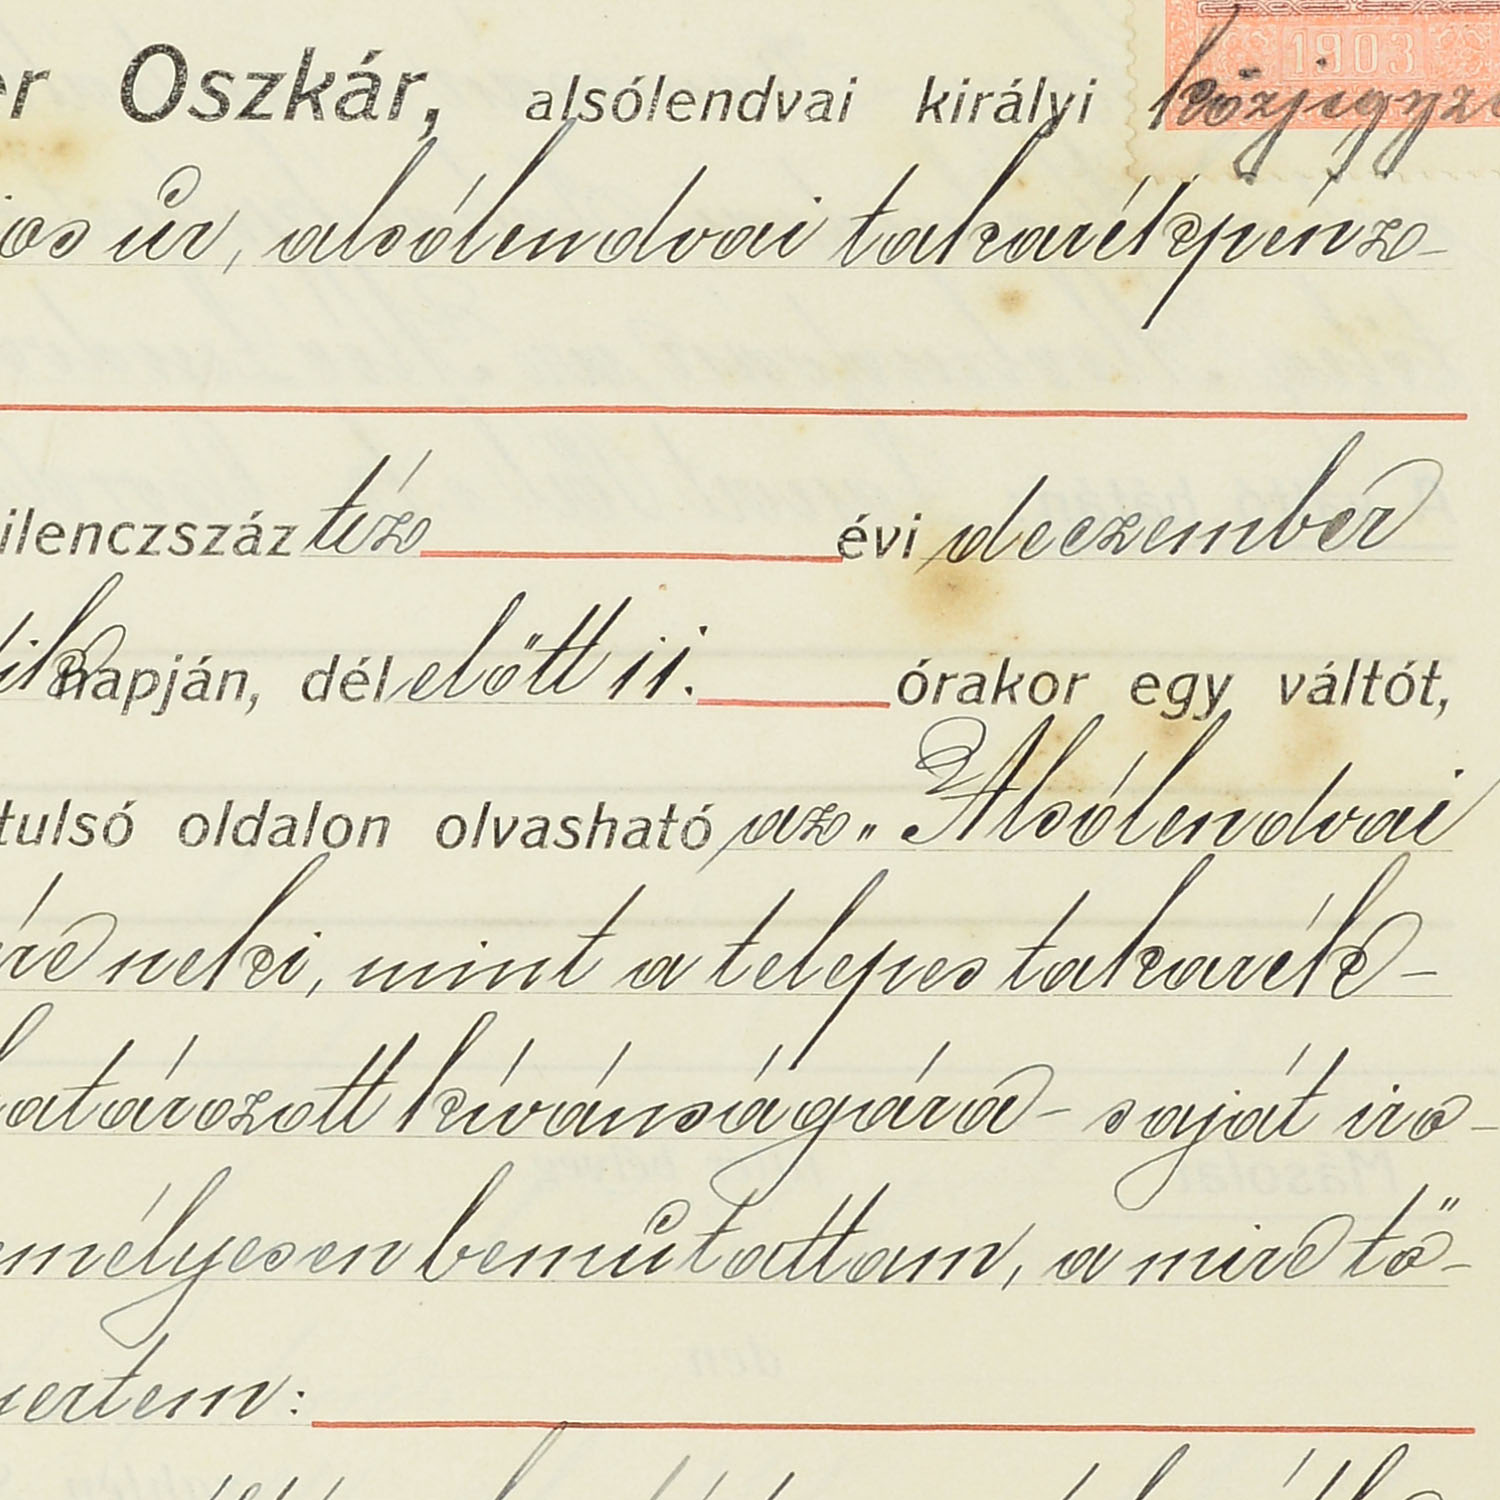 er Oszkár, alsólendvai királyi közjegyző
1903
jos úr, alsólendvai takarékpénz-
ilenczszáz tíz évi deczember
dik napján, dél előtt 11. órakor egy váltót,
tulsó oldalon olvasható az „Alsólendvai
re neki, mint a telepes takarék-
határozott kívánságára - saját iro-
emélyesen bemutattam, a mire tő-
nyertem: